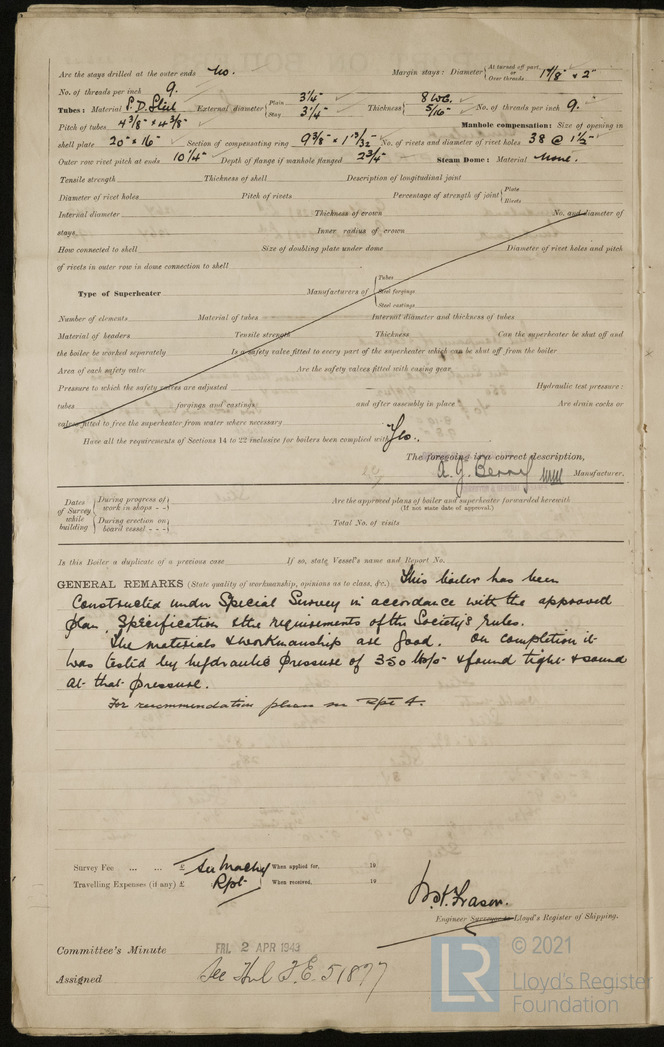 Are the stays drilled at the outer ends No. Margin stays: Diameter { At turned off part, or Over threads 1 7/8" & 2"
No. of threads per inch 9.
Tubes: Material S.D. Steel External diameter { Plain 3 1/4" Stay 3 1/4" Thickness { 8 WG. 5/16" No. of threads per inch 9.
Pitch of tubes 4 3/8" x 4 3/8" Manhole compensation: Size of opening in
shell plate 20" x 16" Section of compensating ring 9 3/8" x 1 13/32" No. of rivets and diameter of rivet holes 38 @ 1 1/2"
Outer row rivet pitch at ends 10 1/4" Depth of flange if manhole flanged 2 3/4" Steam Dome: Material None.
Tensile strength Thickness of shell Description of longitudinal joint
Diameter of rivet holes Pitch of rivets Percentage of strength of joint { Plate Rivets
Internal diameter Thickness of crown No. and diameter of
stays Inner radius of crown
How connected to shell Size of doubling plate under dome Diameter of rivet holes and pitch
of rivets in outer row in dome connection to shell
Type of Superheater Manufacturers of { Tubes Steel forgings Steel castings
Number of elements Material of tubes Internal diameter and thickness of tubes
Material of headers Tensile strength Thickness Can the superheater be shut off and
the boiler be worked separately Is a safety valve fitted to every part of the superheater which can be shut off from the boiler
Area of each safety valve Are the safety valves fitted with easing gear
Pressure to which the safety valves are adjusted Hydraulic test pressure:
tubes forgings and castings and after assembly in place Are drain cocks or
valves fitted to free the superheater from water where necessary
Have all the requirements of Sections 14 to 22 inclusive for boilers been complied with Yes.
The foregoing is a correct description,
A. G. Berry Manufacturer.
Dates of Survey while building { During progress of work in shops - - During erection on board vessel - - -
Are the approved plans of boiler and superheater forwarded herewith
(If not state date of approval.)
Total No. of visits
Is this Boiler a duplicate of a previous case If so, state Vessel's name and Report No.
GENERAL REMARKS (State quality of workmanship, opinions as to class, &c.) This boiler has been
constructed under Special Survey in accordance with the approved
plan, Specification & the requirements of the Society's rules.
The materials & workmanship are good. On completion it
was tested by hydraulic pressure of 350 lbs & found tight & sound
at that pressure.
For recommendation please see Rpt 4.
Survey Fee ... ... £ See Machy When applied for, 19
Travelling Expenses (if any) £ Rpt When received, 19
Engineer Surveyor to Lloyd's Register of Shipping.
Committee's Minute FRI. 2 APR 1943
Assigned See Hul F.E. 51877
LR
© 2021
Lloyd's Register
Foundation